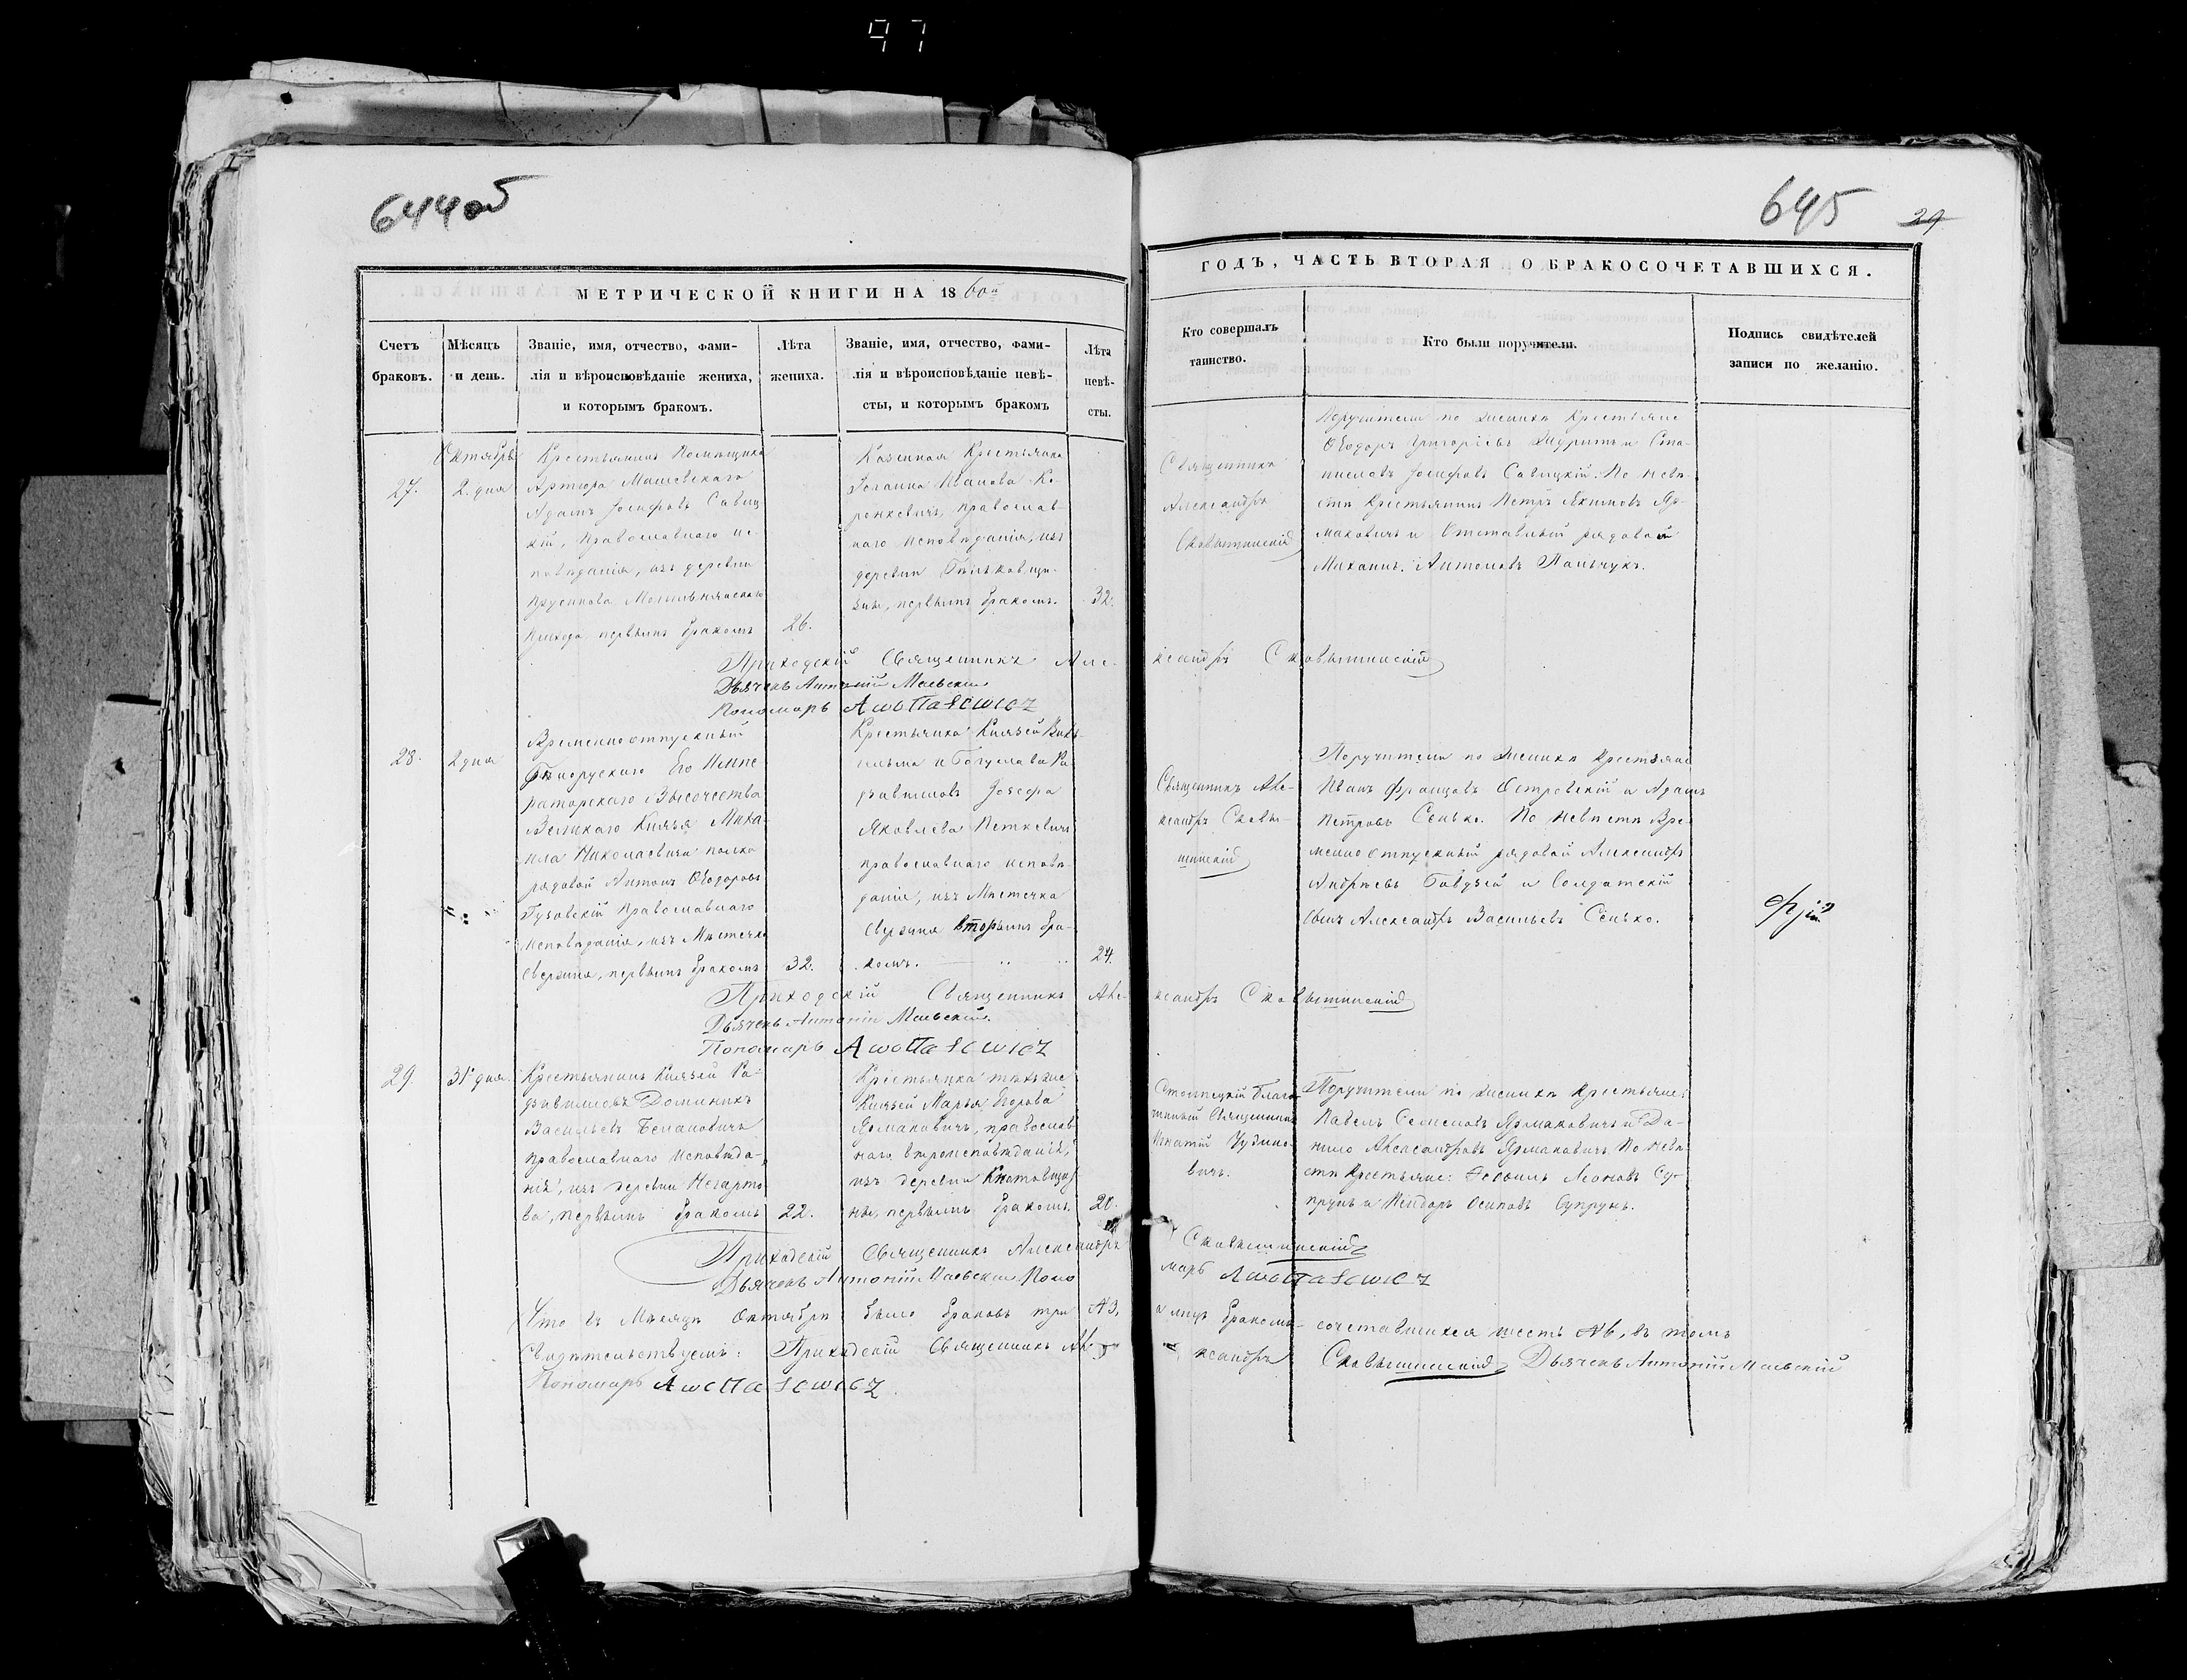 97
644об
645 29
МЕТРИЧЕСКОЙ КНИГИ НА 1860й
ГОДЪ, ЧАСТЬ ВТОРАЯ О БРАКОСОЧЕТАВШИХСЯ.
Счетъ
браковъ.
Мѣсяцъ
и день.
Званіе, имя, отчество, фами-
лія и вѣроисповѣданіе жениха,
и которымъ бракомъ.
Лѣта
жениха.
Званіе, имя, отчество, фами-
лія и вѣроисповѣданіе невѣ-
сты, и которымъ бракомъ
Лѣта
невѣ-
сты.
Кто совершалъ
таинство.
Кто были поручители.
Подпись свидѣтелей
записи по желанію.
27.
Октября
2. дня
Крестьянинъ Помѣщика
Артюра
Адамъ Іосифовъ Савиц
кій, Православнаго ис-
повѣданія, изъ деревни
прихода первымъ бракомъ
26.
Казенная Крестьянка
Іоганна Иванова Ко-
ренкевичъ, православ-
наго исповѣданія, изъ
деревни
ны, первымъ бракомъ.
32.
Священникъ
Александръ
Сковышинскій
Поручители по женихѣ Крестьяне
Ѳеодоръ Григорьевъ и Ста-
ниславъ Іосифовъ Савицкій. По невѣ-
стѣ Крестьянинъ Петръ Якимовъ Яр-
маковичъ и Отставный рядовой
Михаилъ Антоновъ Панчукъ.
Приходскій Священникъ Але-
ксандръ Сковышинскій
Дьячекъ Антоній Маевскій
Пономарь
28.
2 дня
Временноотпускный
Его Импе
раторскаго Высочества
Великаго Князя Миха-
ила Николаевича полка
рядовой Антонъ Ѳеодоровъ
Гузовскій Православнаго
исповѣданія, изъ Мѣстечка
Свержня, первымъ бракомъ
32.
Крестьянка Князей Виль-
гельма и Богуслава Ра-
дзивиловъ Іозефа
Яковлева Петкевичъ
православнаго исповѣ-
данія, изъ Мѣстечка
Свержня вторымъ бра-
комъ.
24.
Священникъ Але-
ксандръ Сковы-
шинскій
Поручители по женихѣ Крестьяне
Иванъ Францовъ Островскій и Адамъ
Петровъ Сенько. По невѣстѣ Вре-
менно отпускный рядовой Александръ
Андреевъ и Солдатскій
сынъ Александръ Васильевъ Сенько.
Приходскій Священникъ Але-
ксандръ Сковышинскій
Дьячекъ Антоній Маевскій.
Пономарь
29
31го дня.
Крестьянинъ Князей Ра-
дзивиловъ Доминикъ
Васильевъ
православнаго Исповѣда-
нія, изъ деревни
ва, первымъ бракомъ
22.
Крестьянка тѣхъ же
Князей Марья Егорова
Ярмаковичъ, православ
наго вѣроисповѣданія,
изъ деревни
ны, первымъ бракомъ
20.
Столпецкій Благо-
чинный Священникъ
Игнатій
вичъ.
Поручители по женихѣ Крестьяне:
Павелъ Семеновъ Ярмаковичъ и Да-
нило Александровъ Ярмаковичъ. По невѣ-
стѣ Крестьяне: Леоновъ Су-
прунъ и Осиповъ Супрунъ.
Приходскій Священникъ Александръ
Сковышинскій
Дьячекъ Антоній Маевскій Поно
марь
Что въ Мѣсяцѣ Октябрѣ было браковъ три №3,
а лицъ бракомъ сочетавшихся шесть №6, въ томъ
Свидѣтельствуемъ: Приходскій Священникъ Але-
ксандръ Сковышинскій Дьячекъ Антоній Маевскій
Пономарь